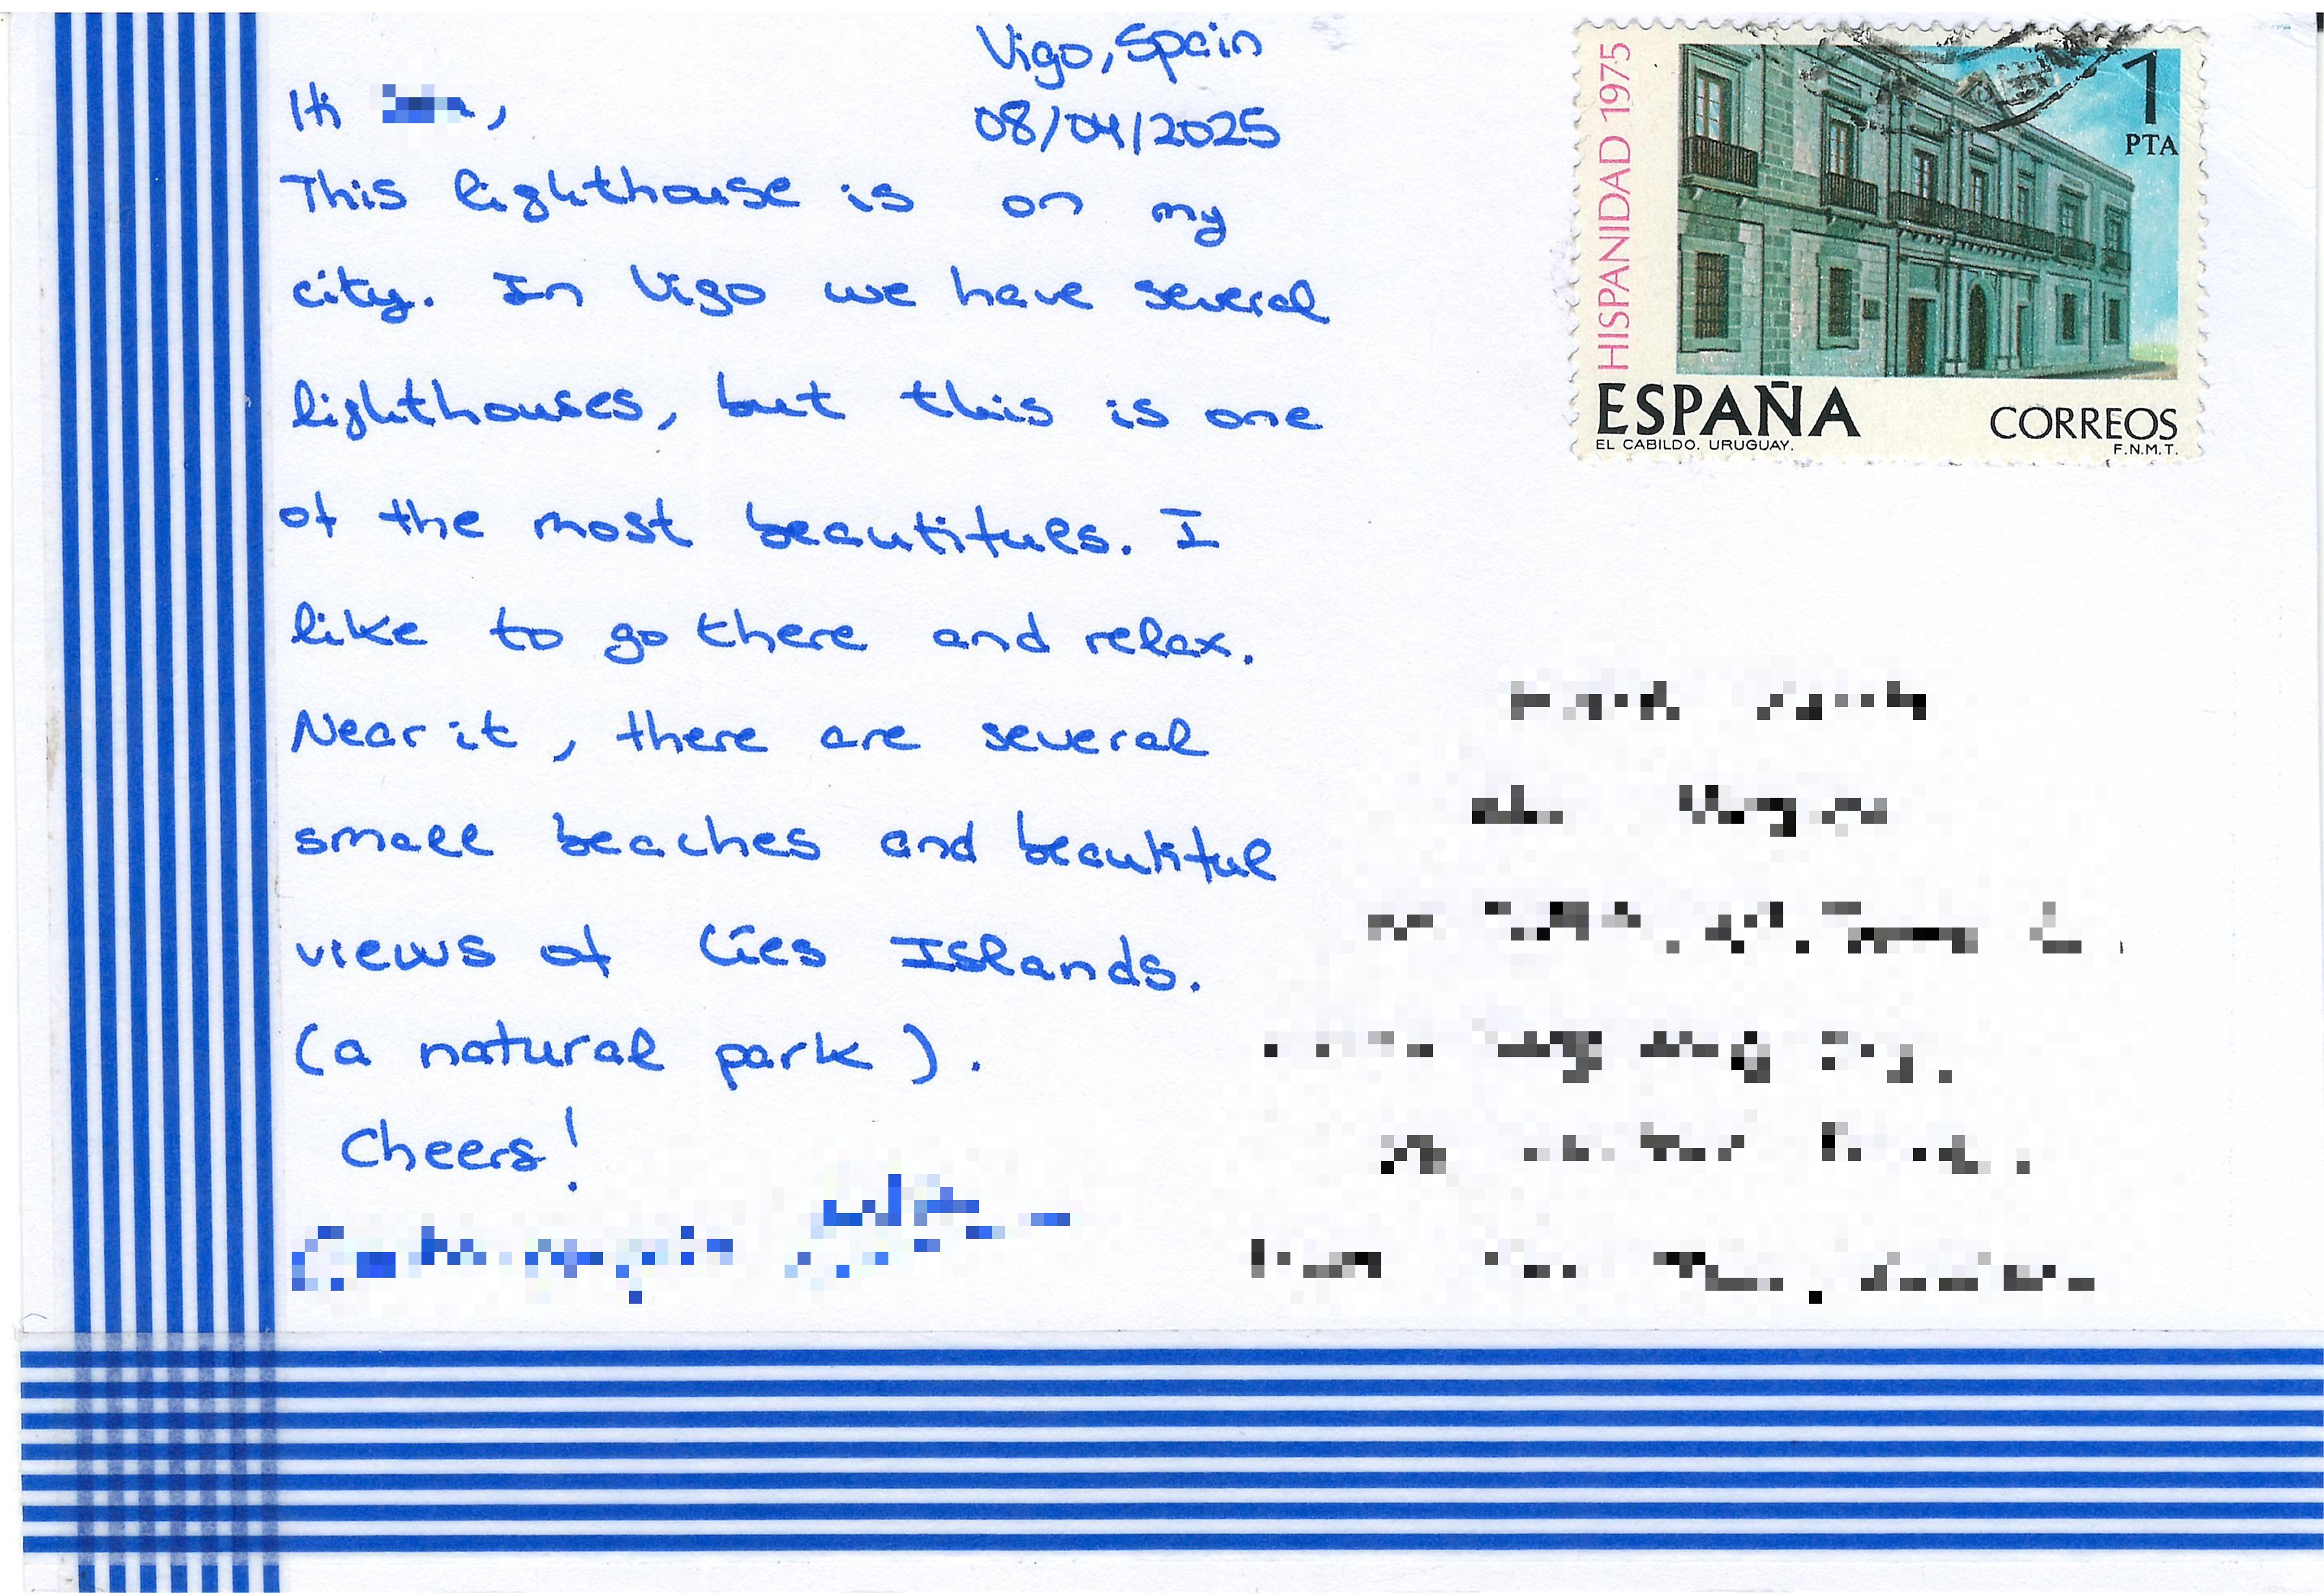 Vigo, Spain
08/04/2025
Hi
This lighthouse is on my
city. In Vigo we have several
lighthouses, but this is one
of the most beautifuls. I
like to go there and relax.
Near it, there are several
small beaches and beautiful
views of Cíes Islands.
(a natural park).
Cheers!
HISPANIDAD 1975
1
PTA
ESPAÑA CORREOS
EL CABILDO. URUGUAY. F.N.M.T.